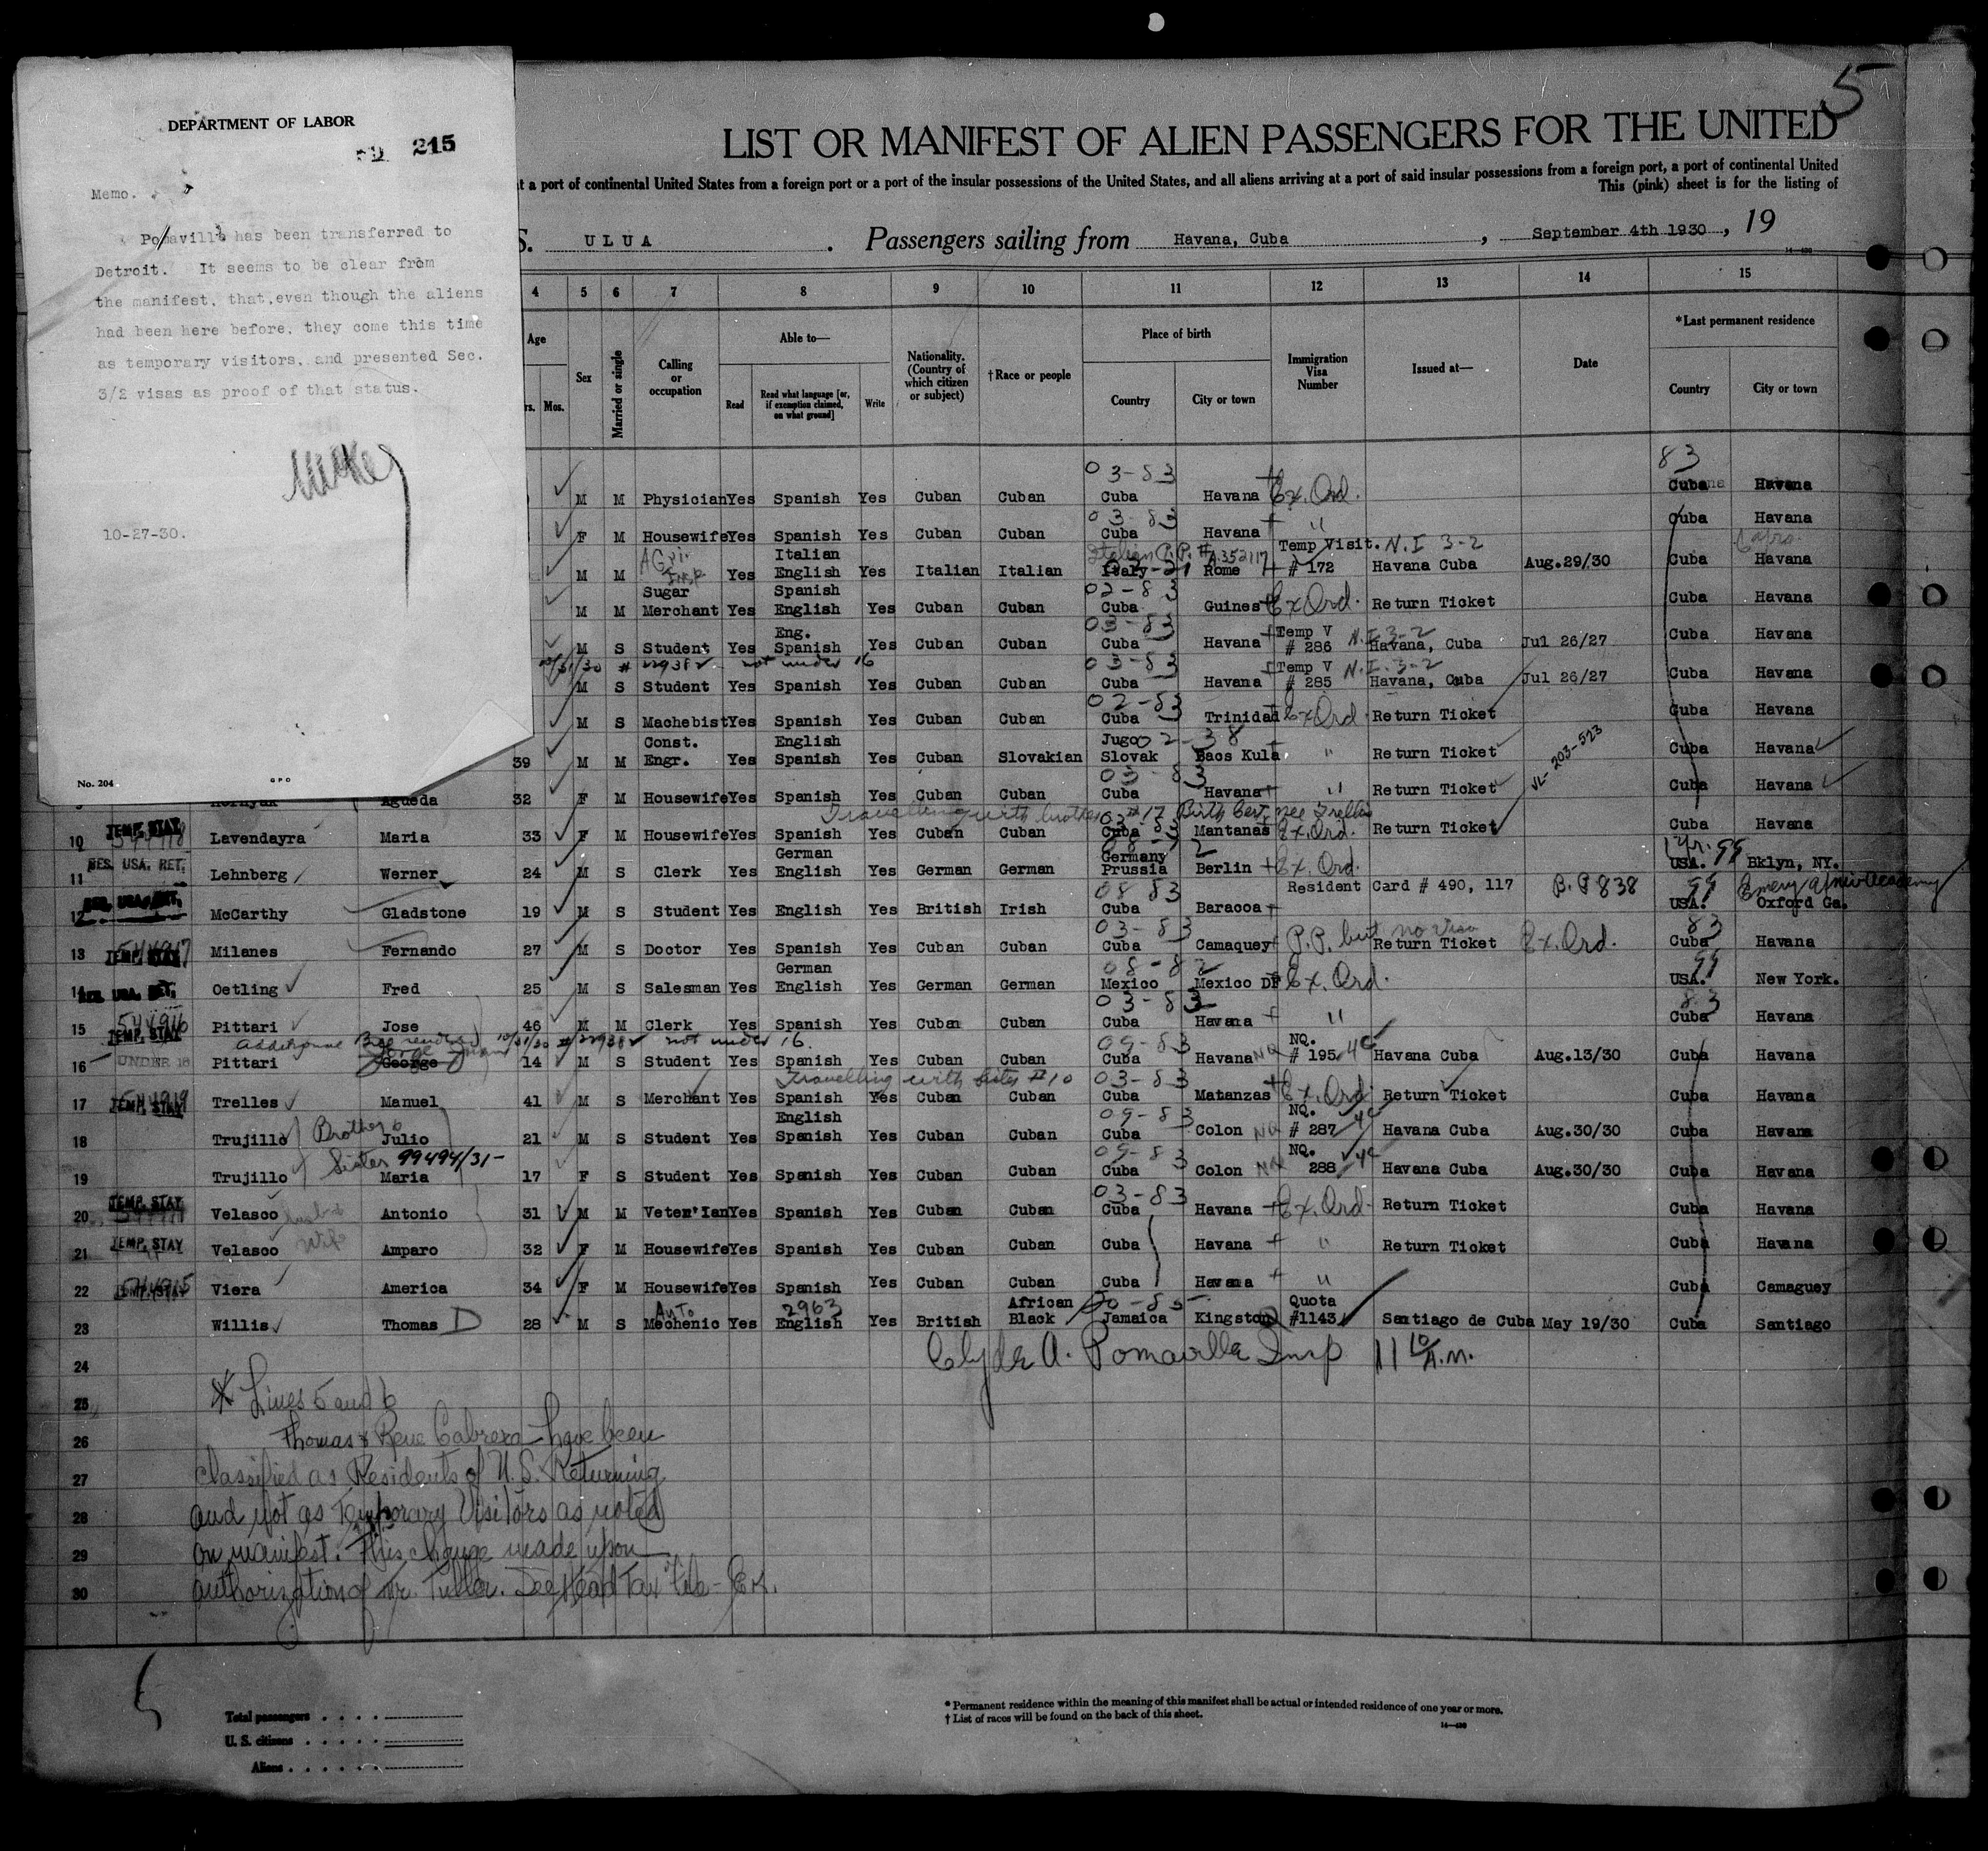 5
DEPARTMENT OF LABOR
215
Memo.
Pomaville has been transferred to
Detroit. It seems to be clear from
the manifest, that even though the aliens
had been here before, they come this time
as temporary visitors, and presented Sec.
3/2 visas as proof of that status.
10-27-30.
No. 204
GPO
LIST OR MANIFEST OF ALIEN PASSENGERS FOR THE UNITED
t a port of continental United States from a foreign port or a port of the insular possessions of the United States, and all aliens arriving at a port of said insular possessions from a foreign port, a port of continental United
This (pink) sheet is for the listing of
S. ULUA. Passengers sailing from Havana, Cuba, September 4th 1930, 19
14-430
4 5 6 7 8 9 10 11 12 13 14 15
Age Sex Married or single Calling or occupation Able to— Nationality. (Country of which citizen or subject) †Race or people Place of birth Immigration Visa Number Issued at— Date *Last permanent residence
rs. Mos. Read Read what language [or, if exemption claimed, on what ground] Write Country City or town Country City or town
03-83 83
M M Physician Yes Spanish Yes Cuban Cuban Cuba Havana Ex. Ord. Cuba Havana
03-83
F M Housewife Yes Spanish Yes Cuban Cuban Cuba Havana " Cuba Havana
Italian P.P. # A352117 Temp Visit. N.I 3-2
M M Agri. Insp. Yes Italian English Yes Italian Italian Italy Rome # 172 Havana Cuba Aug.29/30 Cuba Havana
02-83
M M Sugar Merchant Yes Spanish English Yes Cuban Cuban Cuba Guines Ex Ord. Return Ticket Cuba Havana
03-83
M S Student Yes Eng. Spanish Yes Cuban Cuban Cuba Havana Temp V # 286 N.I. 3-2 Havana, Cuba Jul 26/27 Cuba Havana
10/31/30 # 22938 not under 16 03-83
M S Student Yes Spanish Yes Cuban Cuban Cuba Havana Temp V # 285 N.I. 3-2 Havana, Cuba Jul 26/27 Cuba Havana
02-83
M S Machebist Yes Spanish Yes Cuban Cuban Cuba Trinidad Ex Ord. Return Ticket Cuba Havana
39 M M Const. Engr. Yes English Spanish Yes Cuban Slovakian Jugo Slovak Bacs Kula " Return Ticket Cuba Havana
VL-203-523
03-83
Agueda 32 F M Housewife Yes Spanish Yes Cuban Cuban Cuba Havana " Return Ticket Cuba Havana
Travelling with brother #17 Birth Cert. nee Trelles
10 TEMP. STAY Lavendayra Maria 33 F M Housewife Yes Spanish Yes Cuban Cuban Cuba Mantanas Ex. Ord. Return Ticket Cuba Havana
11 RES. USA. RET. Lehnberg Werner 24 M S Clerk Yes German English Yes German German Germany Prussia Berlin Ex. Ord. USA. 99 Bklyn, NY.
08 83 Resident Card # 490, 117 B.P 838 99
12 RES. USA. RET. McCarthy Gladstone 19 M S Student Yes English Yes British Irish Cuba Baracoa USA. Oxford Ga.
03-83 P.P. but no visa 83
13 TEMP. STAY Milanes Fernando 27 M S Doctor Yes Spanish Yes Cuban Cuban Cuba Camaquey Return Ticket Ex. Ord. Cuba Havana
08-82 99
14 RES. USA. RET. Oetling Fred 25 M S Salesman Yes German English Yes German German Mexico Mexico DF Ex. Ord. USA. New York.
03-83 83
15 544916 TEMP. STAY Pittari Jose 46 M M Clerk Yes Spanish Yes Cuban Cuban Cuba Havana " Cuba Havana
10/31/30 # 22938 not under 16. 09-83
16 UNDER 16 Pittari George 14 M S Student Yes Spanish Yes Cuban Cuban Cuba Havana NQ NQ. # 195 Havana Cuba Aug.13/30 Cuba Havana
Travelling with sister #10 03-83
17 TEMP. STAY Trelles Manuel 41 M S Merchant Yes Spanish Yes Cuban Cuban Cuba Matanzas Ex. Ord Return Ticket Cuba Havana
09-83
18 Trujillo Brother Julio 21 M S Student Yes English Spanish Yes Cuban Cuban Cuba Colon NQ NQ. # 287 Havana Cuba Aug.30/30 Cuba Havana
Sister 99494/31- 09-83
19 Trujillo Maria 17 F S Student Yes Spanish Yes Cuban Cuban Cuba Colon NQ NQ. 288 Havana Cuba Aug.30/30 Cuba Havana
03-83
20 TEMP. STAY Velasco husband Antonio 31 M M Veter'Ian Yes Spanish Yes Cuban Cuban Cuba Havana Ex. Ord. Return Ticket Cuba Havana
21 TEMP. STAY Velasco Wife Amparo 32 F M Housewife Yes Spanish Yes Cuban Cuban Cuba Havana " Return Ticket Cuba Havana
22 Viera America 34 F M Housewife Yes Spanish Yes Cuban Cuban Cuba Havana " Cuba Camaguey
23 Willis Thomas D 28 M S Auto Mechenic Yes 2963 English Yes British African Black Jamaica Kingston Quota #1143 Santiago de Cuba May 19/30 Cuba Santiago
24 Clyde A. Pomaville Insp 11 10 A.M.
25 * Lines 5 and 6
26 Thomas & Rene Cabrera have been
27 classified as Residents of U.S. Returning
28 and not as Temporary Visitors as noted
29 on manifest. This change made upon
30 authorization of Mr. Tuller. See Head Tax file
Total passengers
U. S. citizens
Aliens
* Permanent residence within the meaning of this manifest shall be actual or intended residence of one year or more.
† List of races will be found on the back of this sheet.
14-430